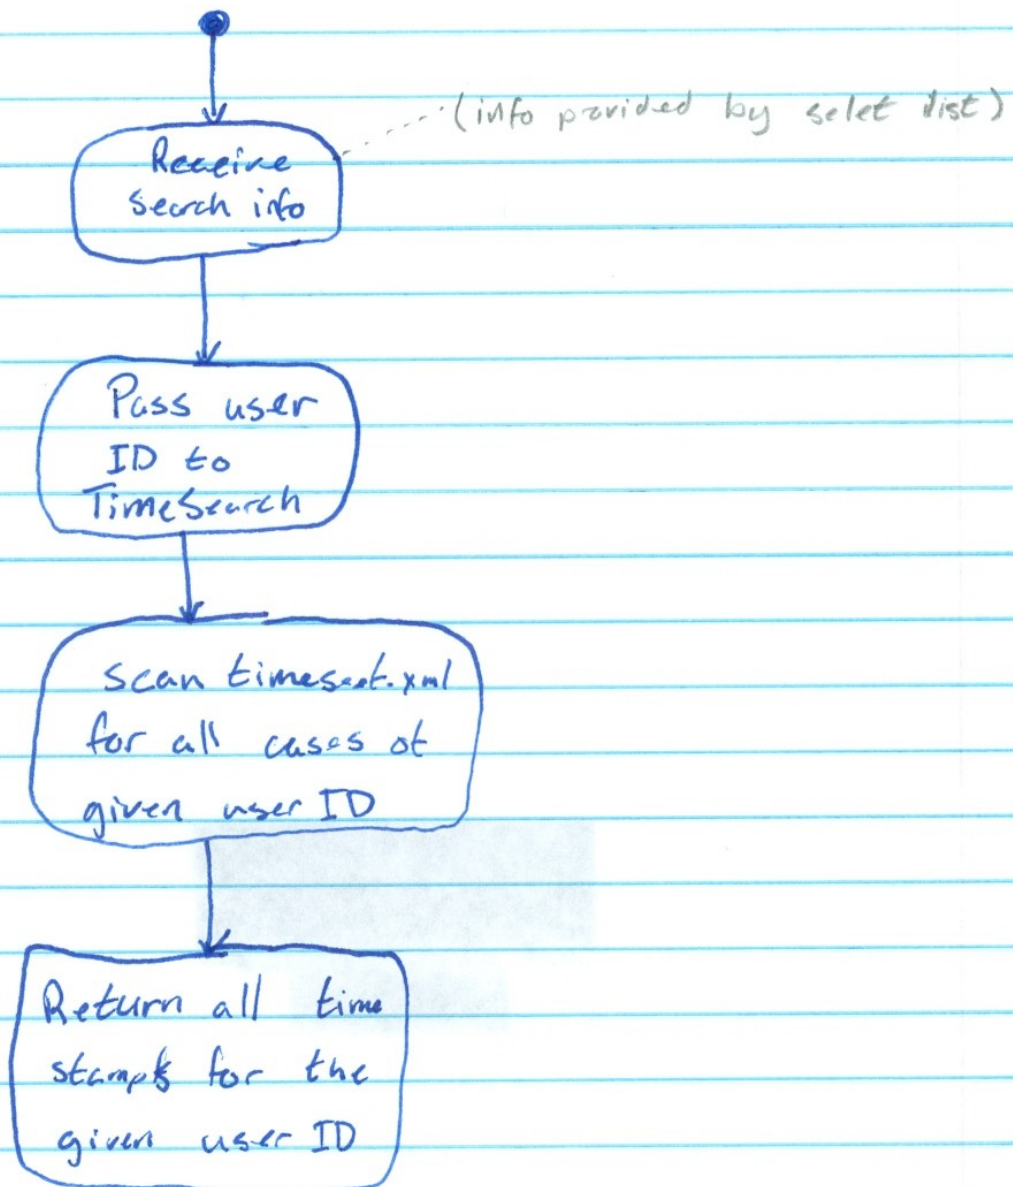 (info provided by selet list)
Receive
search info
Pass user
ID to
TimeSearch
scan
for all cases of
given user ID
Return all time
stamps for the
given user ID